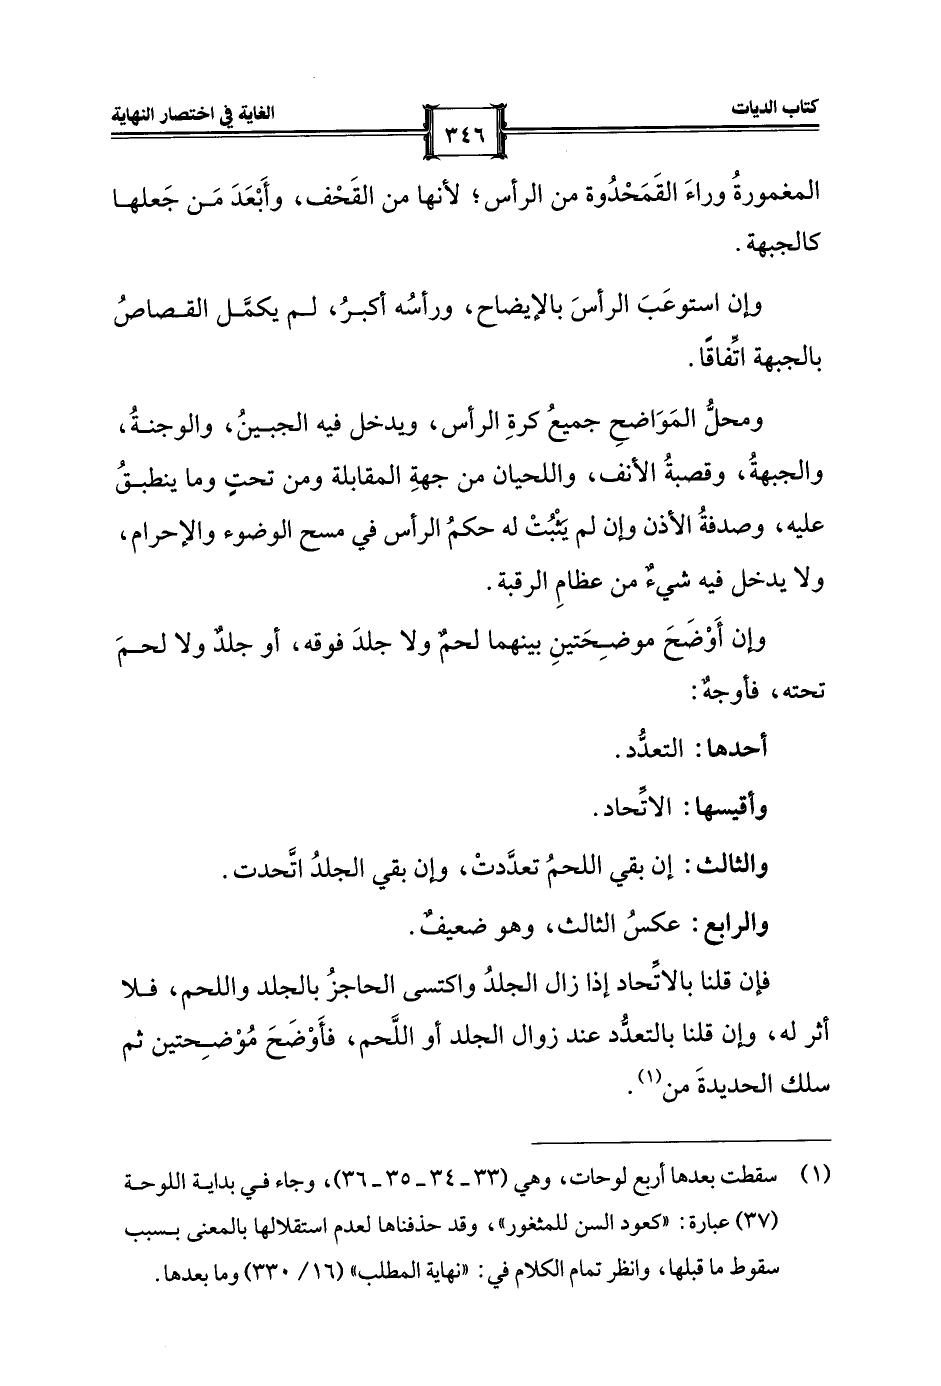 كتاب الديات
٣٤٦
الغاية في اختصار النهاية
المغمورةُ وراءَ القَمَحْدُوة من الرأس؛ لأنها من القَحْف، وأَبْعَدَ مَـن جَعلهـا
كالجبهة.
وإن استوعَبَ الرأسَ بالإيضاح، ورأسُه أكبـرُ، لـم يكمَّـل القـصاصُ
بالجبهة اتِّفاقًا.
ومحلُّ المَوَاضحِ جميعُ كرةِ الرأس، ويدخل فيه الجبـينُ، والوجنـةُ،
والجبهةُ، وقصبةُ الأنف، واللحيان من جهةِ المقابلة ومن تحتٍ وما ينطبـقُ
عليه، وصدفةُ الأذن وإن لم يَثْبُتْ له حكمُ الرأس في مسح الوضوء والإحرام،
ولا يدخل فيه شيءٌ من عظامِ الرقبة.
وإن أَوْضَحَ موضـِحَتينِ بينهما لحمٌ ولا جلدَ فوقه، أو جلدٌ ولا لحـمَ
تحته، فأوجهٌ:
أحدها: التعدُّد.
وأقيسها: الاتِّحاد.
والثالث: إن بقي اللحمُ تعدَّدتْ، وإن بقي الجلدُ اتَّحدت.
والرابع: عكسُ الثالث، وهو ضعيفٌ.
فإن قلنا بالاتِّحاد إذا زال الجلدُ واكتسى الحاجزُ بالجلد واللحم، فـلا
أثر له، وإن قلنا بالتعدُّد عند زوال الجلد أو اللَّحم، فأَوْضَحَ مُوْضـِحتين ثم
سلك الحديدةَ من(١).
(١) سقطت بعدها أربع لوحات، وهي (٣٣ـ ٣٤ـ ٣٥ـ ٣٦)، وجاء فـي بدايـة اللوحـة
(٣٧) عبارة: «كعود السن للمثغور»، وقد حذفناها لعدم استقلالها بالمعنى بـسبب
سقوط ما قبلها، وانظر تمام الكلام في: «نهاية المطلب» (١٦/ ٣٣٠) وما بعدها.